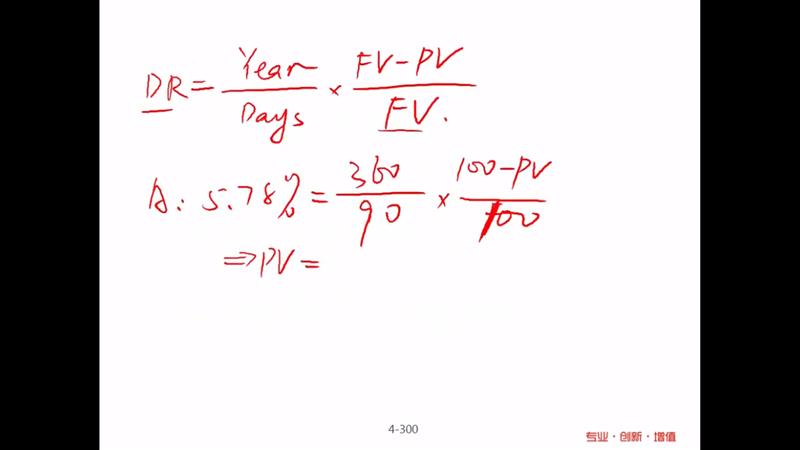 DR = Year/Days × FV-PV/FV.
A: 5.78% = 360/90 × 100-PV/100
⇒ PV =
4-300
专业·创新·增值